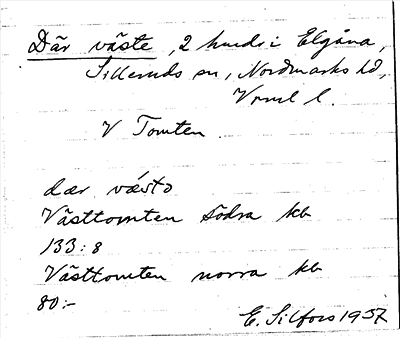 Där väste, 2 hmdr i Elgåna,
Silleruds sn, Nordmarks hd,
Vrml l.
V Tomten
dær väst
Västtomten södra kb
133:8
Västtomten norra kb
80:-
E. Silfors 1937